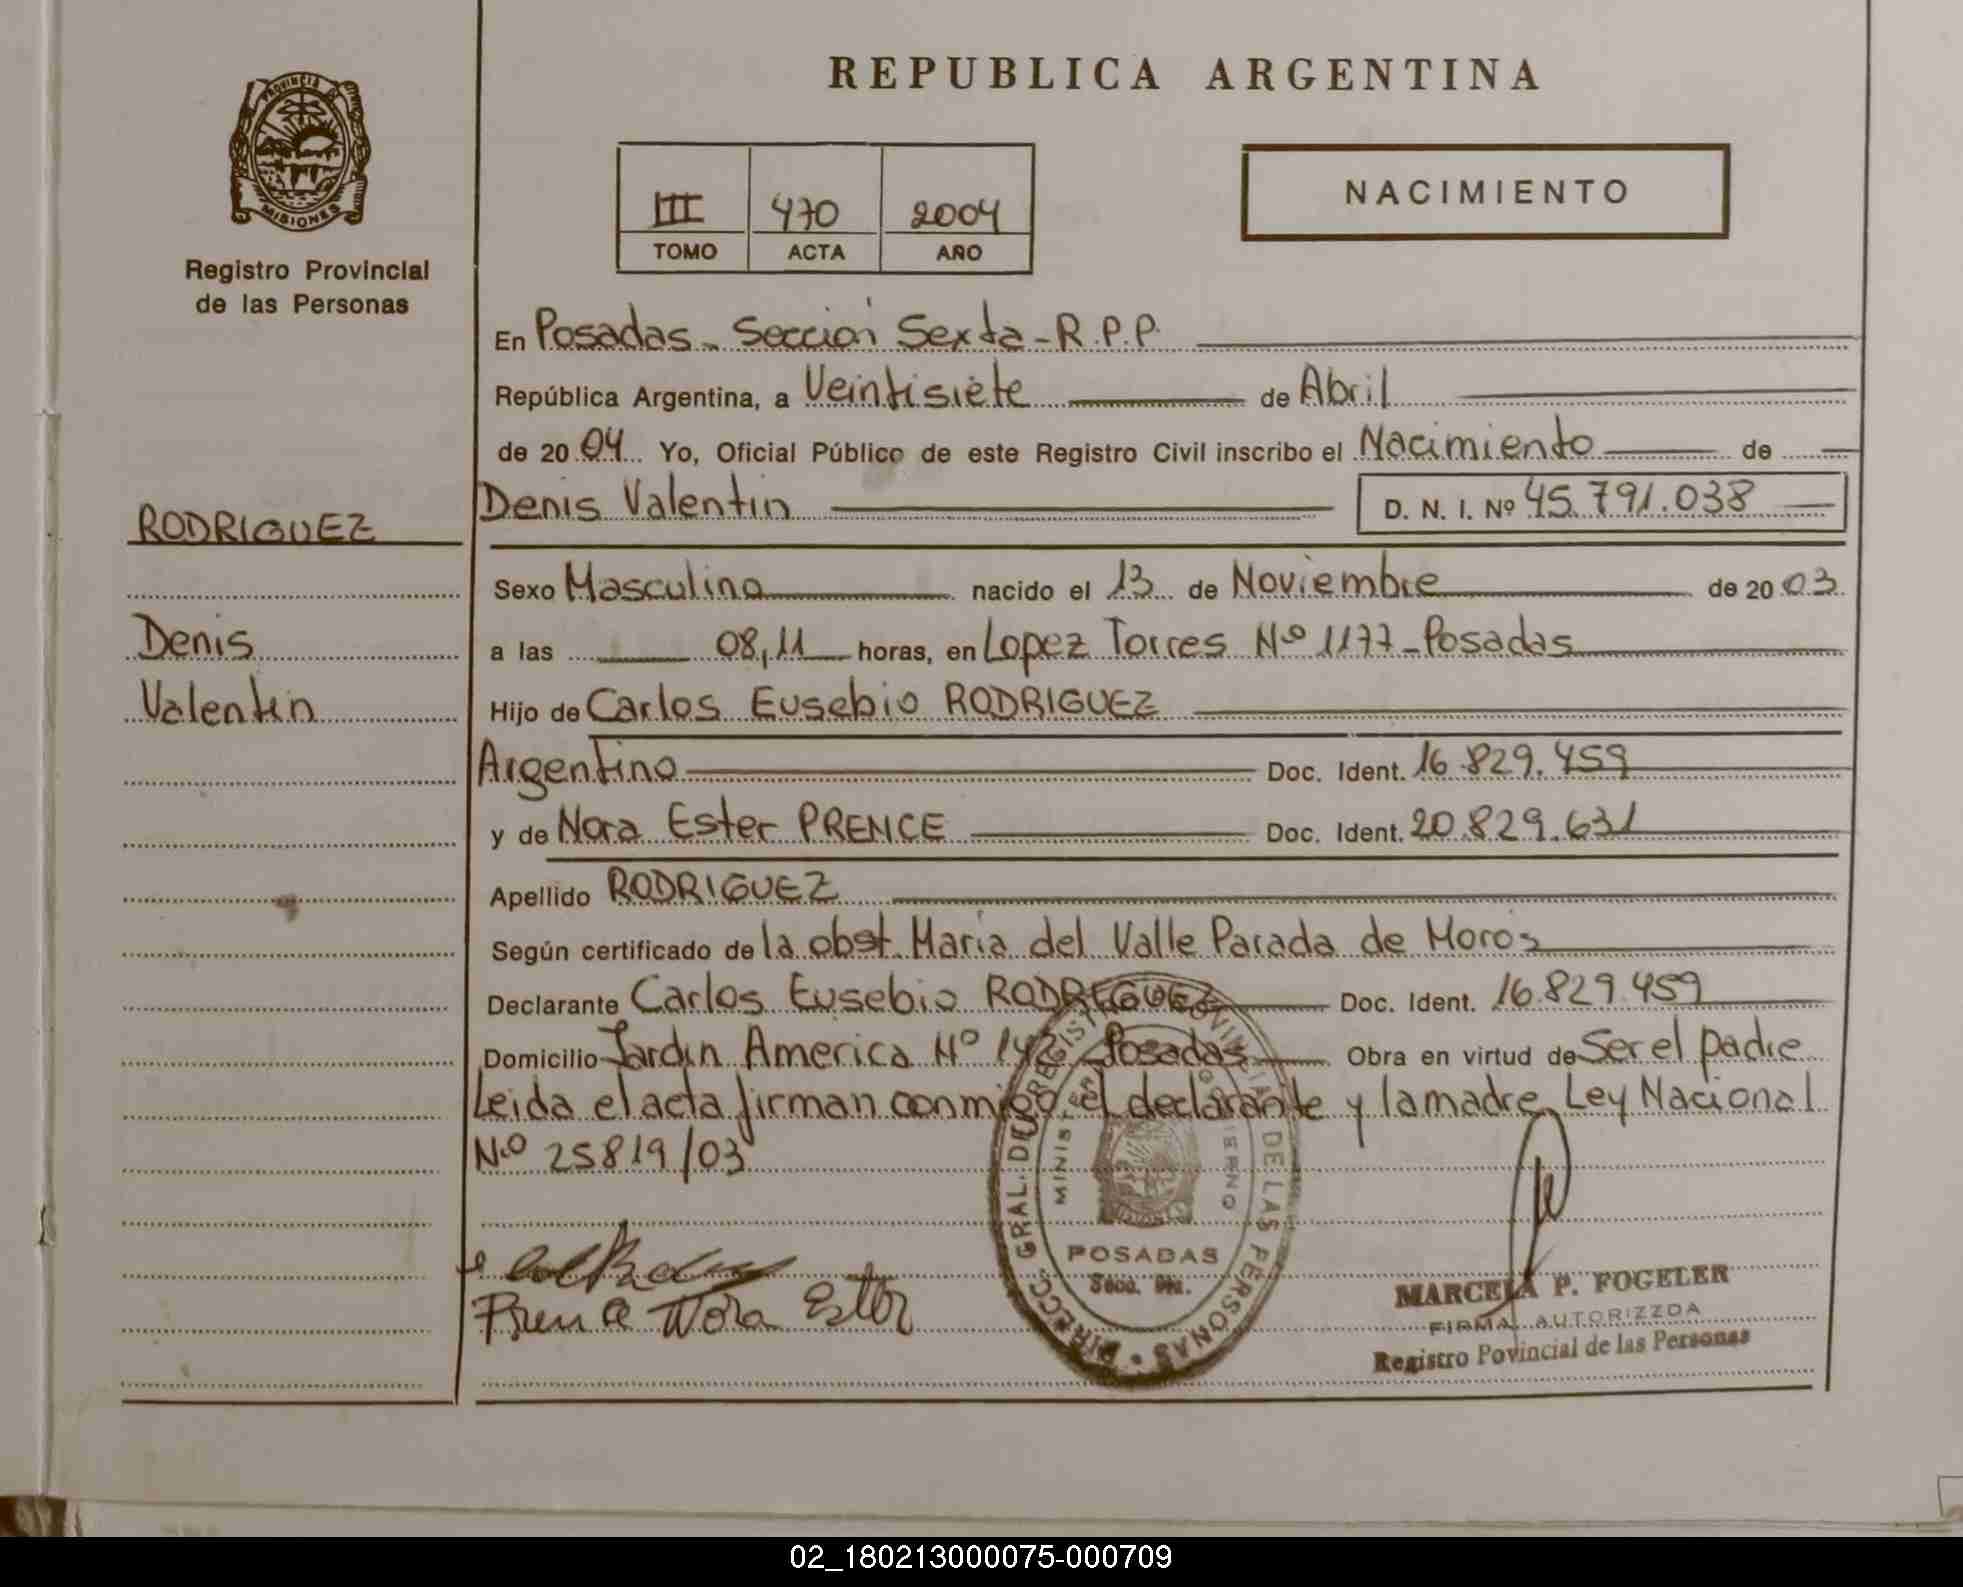 REPUBLICA ARGENTINA
PROVINCIA DE
MISIONES
Registro Provincial
de las Personas
III 470 2004
TOMO ACTA AÑO
NACIMIENTO
En Posadas - Sección Sexta - R.P.P.
República Argentina, a Veintisiete de Abril
de 2004 Yo, Oficial Público de este Registro Civil inscribo el Nacimiento de
Denis Valentin D. N. I. Nº 45.791.038
RODRIGUEZ
Denis
Valentin
Sexo Masculino nacido el 13 de Noviembre de 2003
a las 08,11 horas, en Lopez Torres Nº 1177 - Posadas
Hijo de Carlos Eusebio RODRIGUEZ
Argentino Doc. Ident. 16.829.459
y de Nora Ester PRENCE Doc. Ident. 20.829.631
Apellido RODRIGUEZ
Según certificado de la obst. Maria del Valle Parada de Moros
Declarante Carlos Eusebio RODRIGUEZ Doc. Ident. 16.829.459
Domicilio Jardin America Nº Posadas Obra en virtud de Ser el padre
Leida el acta firman conmigo el declarante y la madre, Ley Nacional
N.º 25819/03
DIRECC. GRAL. DE REGISTRO PROVINCIAL DE LAS PERSONAS
MINISTERIO GOBIERNO
POSADAS
Prence Nora Ester
MARCELA P. FOGELER
FIRMA AUTORIZZDA
Registro Povincial de las Personas
02_180213000075-000709